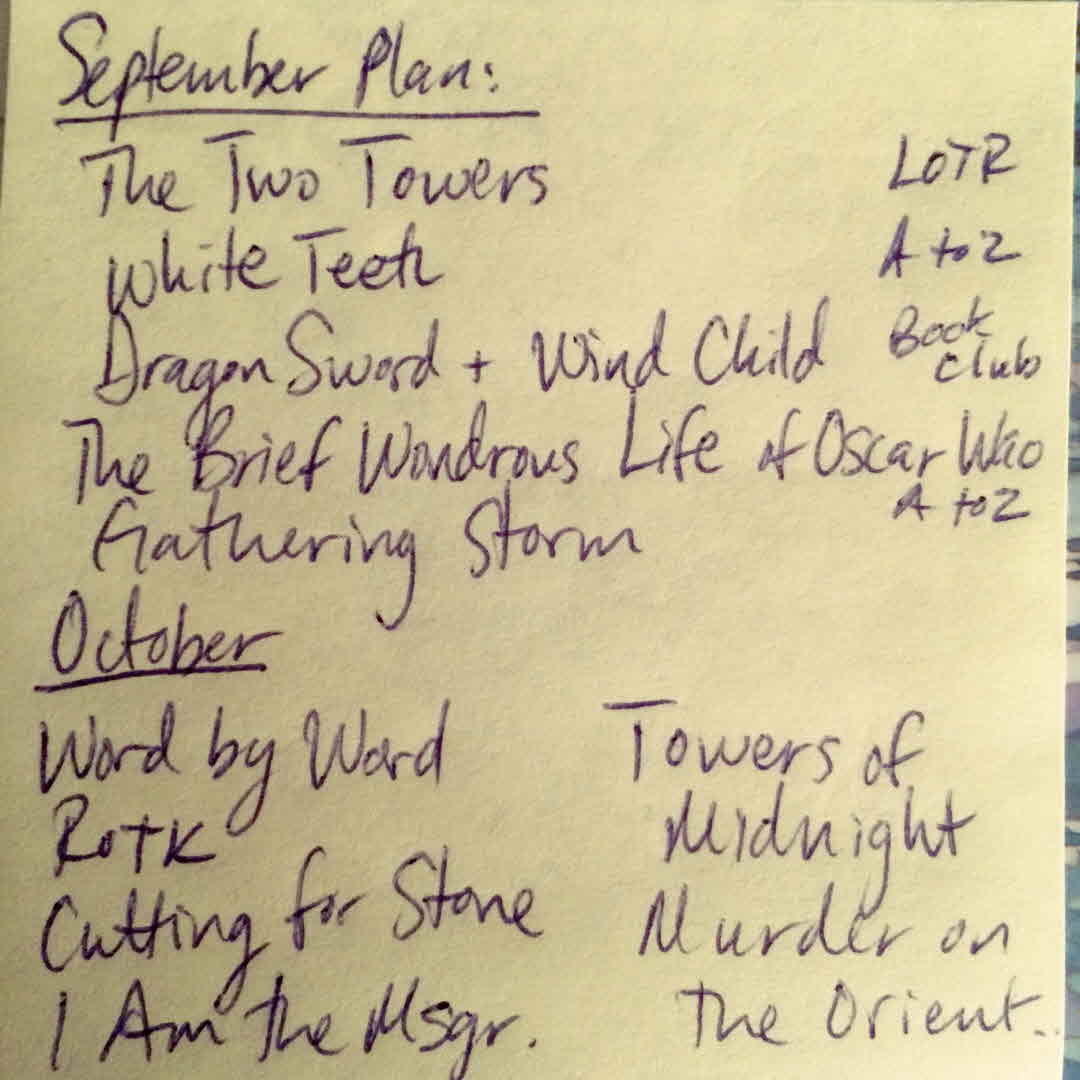 September Plan:
The Two Towers LOTR
White Teeth A to Z
Dragon Sword + Wind Child Book Club
The Brief Wondrous Life of Oscar Wao
A to Z
Gathering Storm
October
Word by Word
ROTK
Cutting for Stone
I Am the Msgr.
Towers of
Midnight
Murder on
The Orient..